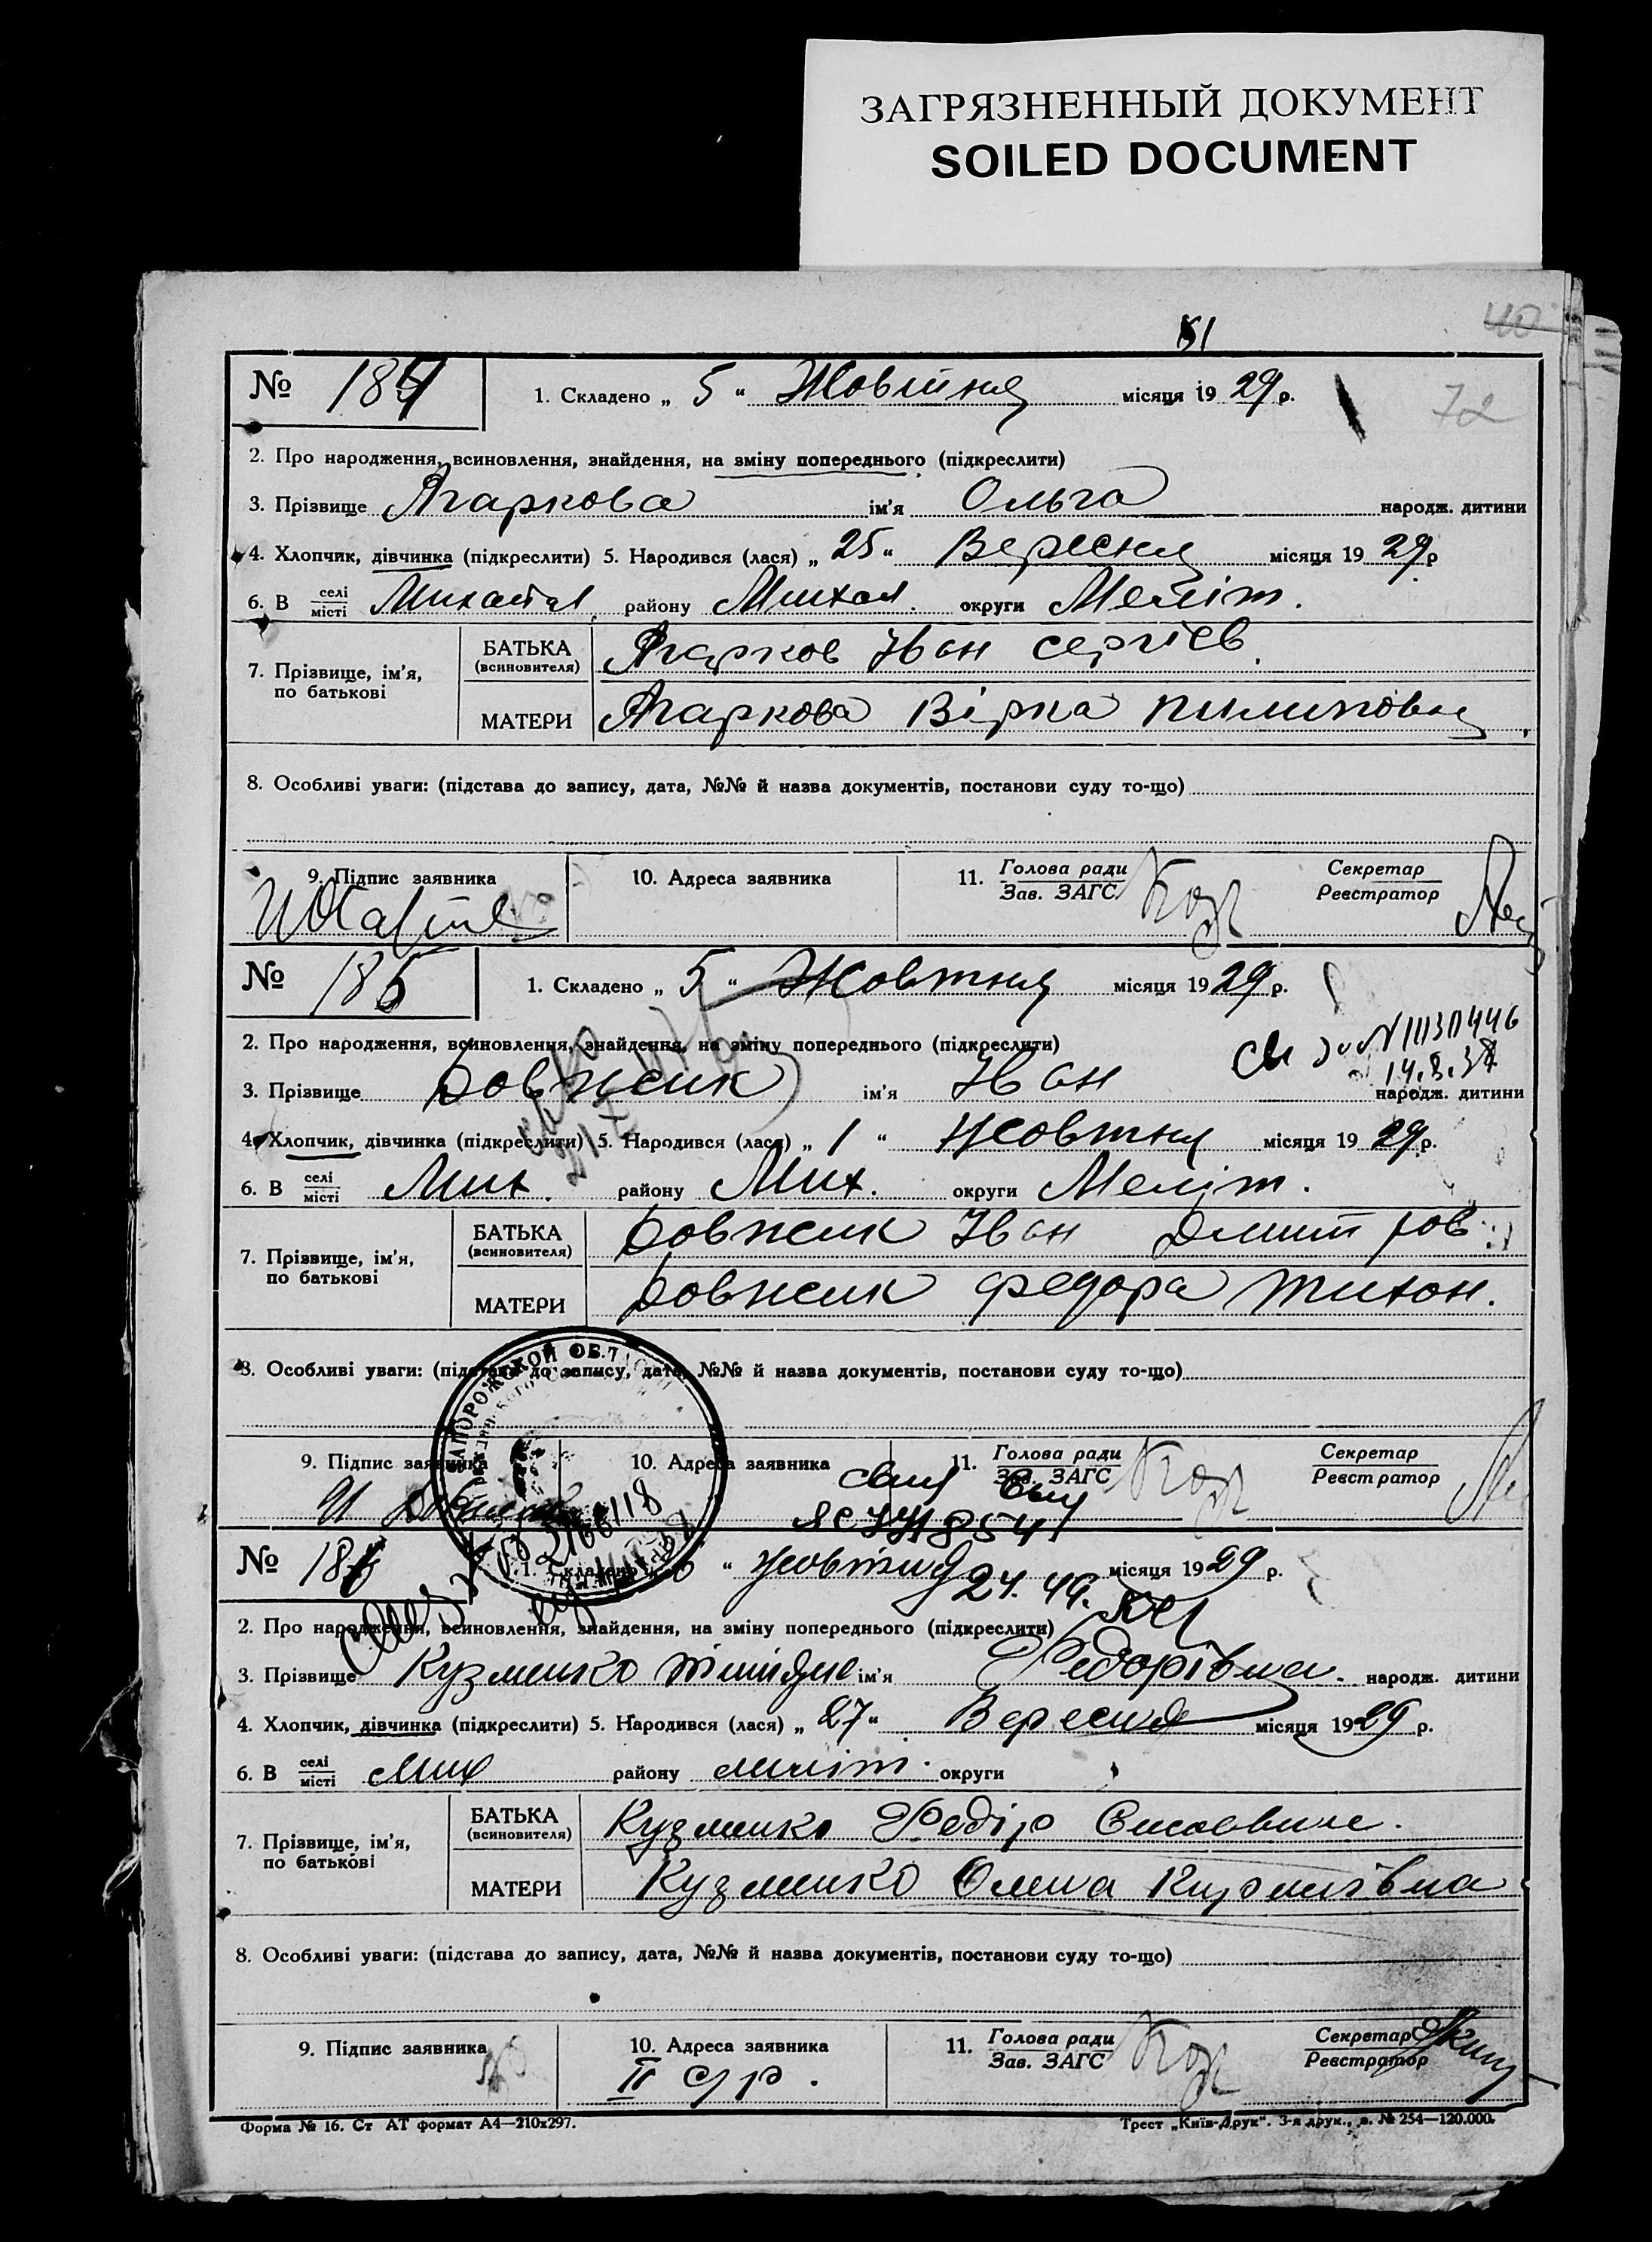 ЗАГРЯЗНЕННЫЙ ДОКУМЕНТ
SOILED DOCUMENT
40
72
№ 184 1. Складено „ 5 “ Жовтня місяця 1929 р.
2. Про народження, всиновлення, знайдення, на зміну попереднього (підкреслити)
3. Прізвище Агаркова ім'я Ольга народж. дитини
4. Хлопчик, дівчинка (підкреслити) 5. Народився (лася) „ 25 “ Вересня місяця 1929 р
6. В селі/місті Михайл. району Михал. округи Меліт.
7. Прізвище, ім'я, по батькові
БАТЬКА (всиновителя) Агарков Іван Сергієв.
МАТЕРИ Агаркова Вірка Пилиповна
8. Особливі уваги: (підстава до запису, дата, №№ й назва документів, постанови суду то-що)
9. Підпис заявника 10. Адреса заявника 11. Голова ради/Зав. ЗАГС Секретар/Реєстратор
№ 185 1. Складено „ 5 “ Жовтня місяця 1929 р.
2. Про народження, всиновлення, знайдення, на зміну попереднього (підкреслити)
3. Прізвище Довжик ім'я Іван народж. дитини
4. Хлопчик, дівчинка (підкреслити) 5. Народився (лася) „ 1 “ Жовтня місяця 1929 р.
6. В селі/місті Мих. району Мих. округи Меліт.
7. Прізвище, ім'я, по батькові
БАТЬКА (всиновителя) Довжик Іван Дмитров
МАТЕРИ Довжик Федора Тихон.
8. Особливі уваги: (підстава до запису, дата, №№ й назва документів, постанови суду то-що)
ЗАПОРОЖСКОЙ ОБЛАСТИ
9. Підпис заявника 10. Адреса заявника 11. Голова ради/Зав. ЗАГС Секретар/Реєстратор
№ 186 1. Складено „ “ Жовтня місяця 1929 р.
2. Про народження, всиновлення, знайдення, на зміну попереднього (підкреслити)
3. Прізвище Кузменко ім'я Федорівна народж. дитини
4. Хлопчик, дівчинка (підкреслити) 5. Народився (лася) „ 27 “ Вересня місяця 1929 р.
6. В селі/місті Мих району Меліт. округи
7. Прізвище, ім'я, по батькові
БАТЬКА (всиновителя) Кузменко Федір
МАТЕРИ Кузменко Олена Кирилівна
8. Особливі уваги: (підстава до запису, дата, №№ й назва документів, постанови суду то-що)
9. Підпис заявника 10. Адреса заявника 11. Голова ради/Зав. ЗАГС Секретар/Реєстратор
Форма № 16. Ст АТ формат А4—210х297. Трест „Київ-Друк“. 3-я друк., з. № 254—120.000.